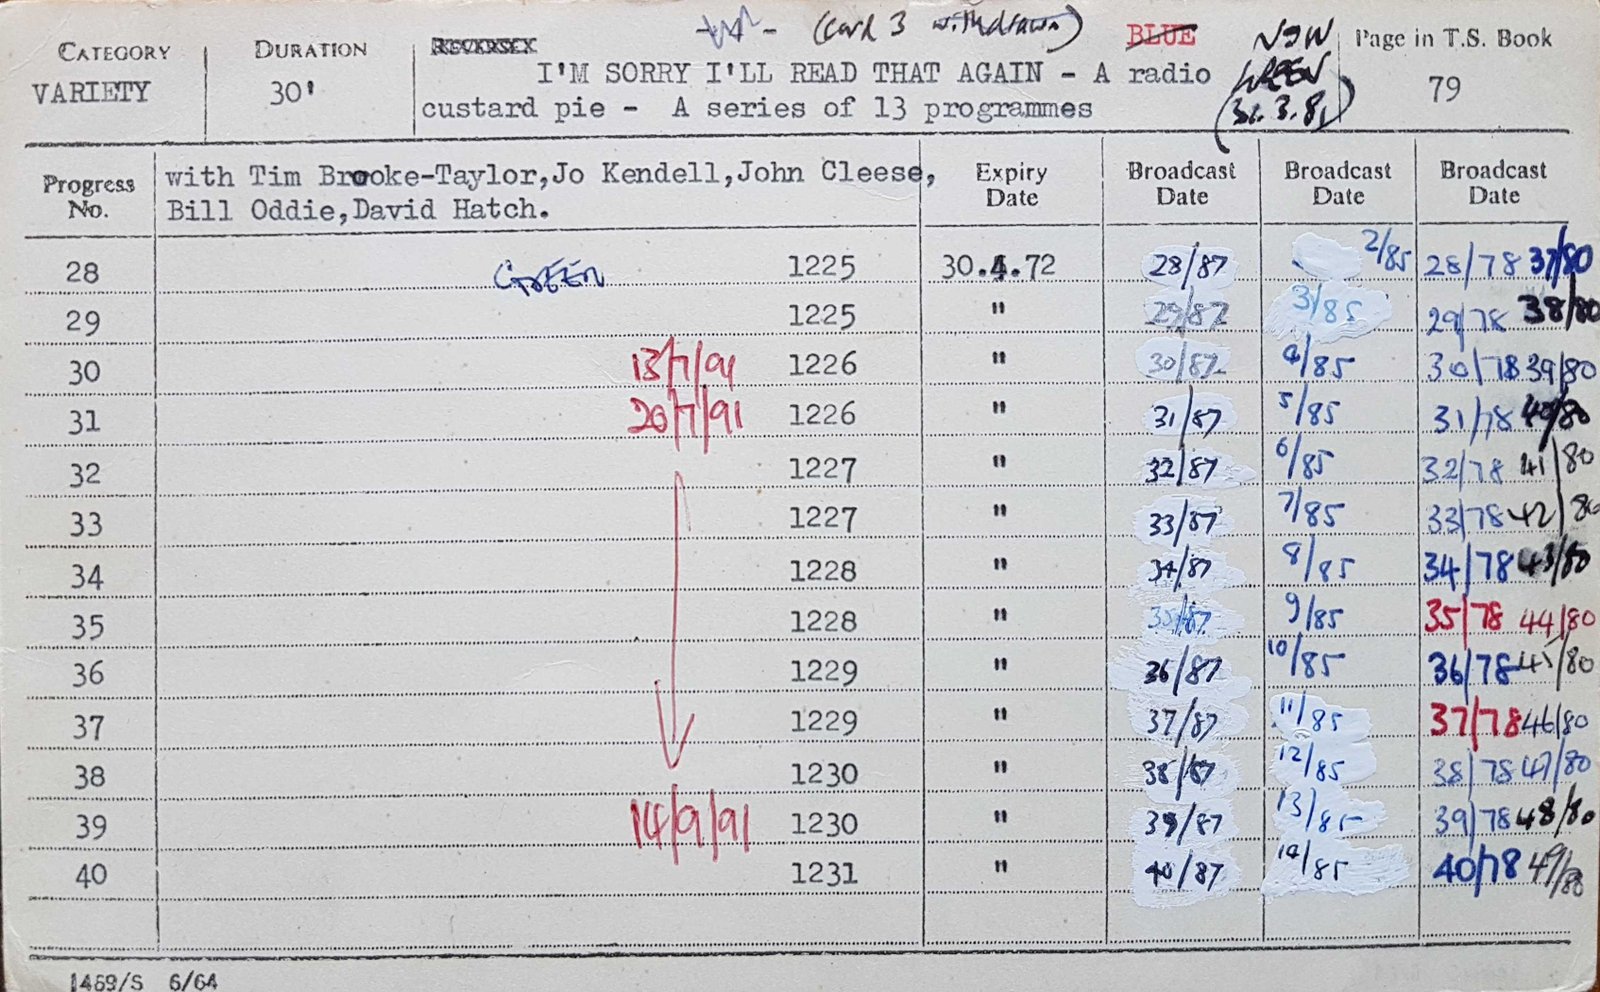 (card 3 withdrawn) BLUE NOW
CATEGORY DURATION Page in T.S. Book
VARIETY 30' I'M SORRY I'LL READ THAT AGAIN - A radio GREEN 79
custard pie - A series of 13 programmes
Progress No. with Tim Brooke-Taylor,Jo Kendell,John Cleese, Expiry Date Broadcast Date Broadcast Date Broadcast Date
Bill Oddie,David Hatch.
28 GREEN 1225 30.4.72 28/87 2/85 28/78 37/80
29 1225 " 29/87 3/85 29/78 38/80
30 13/7/91 1226 " 30/87 4/85 30/78 39/80
31 20/7/91 1226 " 31/87 5/85 31/78 40/80
32 1227 " 32/87 6/85 32/78 41/80
33 1227 " 33/87 7/85 33/78 42/80
34 1228 " 34/87 8/85 34/78 43/80
35 1228 " 35/87 9/85 35/78 44/80
36 1229 " 36/87 10/85 36/78 45/80
37 1229 " 37/87 11/85 37/78 46/80
38 1230 " 38/87 12/85 38/78 47/80
39 14/9/91 1230 " 39/87 13/85 39/78 48/80
40 1231 " 40/87 14/85 40/78 49/80
1469/S 6/64